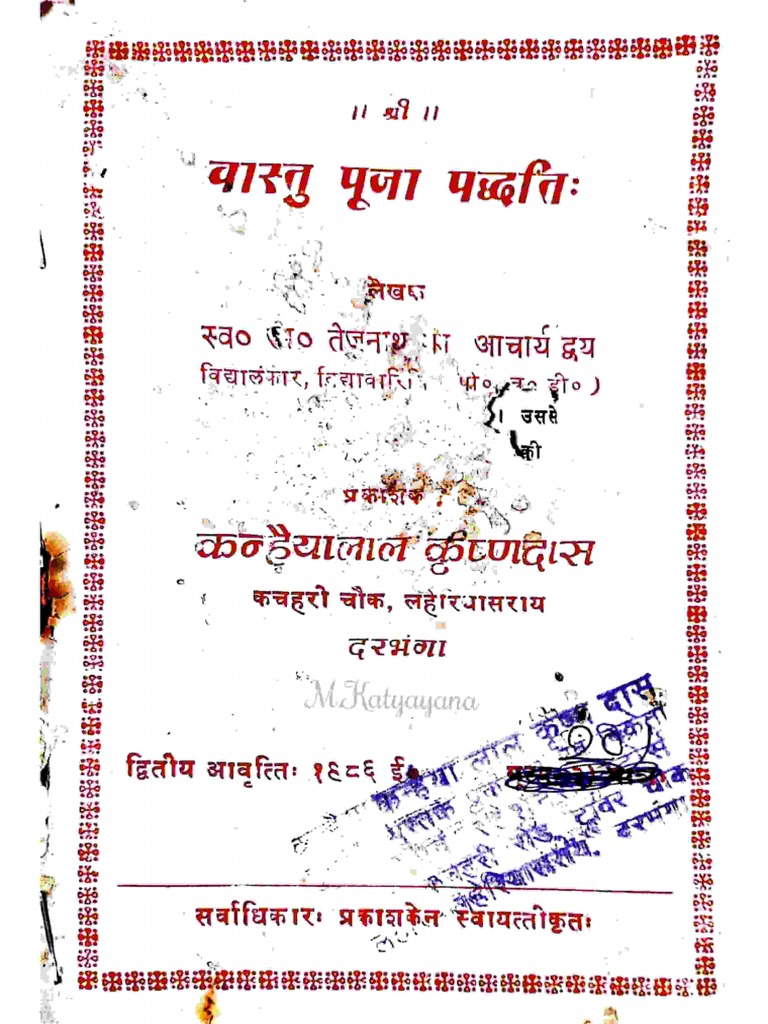 ॥ श्री ॥
वास्तु पूजा पद्धतिः
लेखक
स्व० डा० तेजनाथ झा आचार्य द्वय
विद्यालंकार, विद्यावारि
। उससे
की
प्रकाशक :
कन्हैयालाल कृष्णदास
कचहरी चौक, लहेरियासराय
दरभंगा
M.Katyayana
द्वितीय आवृत्तिः १९८६ ई०
कन्हैया लाल कृष्ण दास
पुस्तक विक्रेता
कचहरी रोड, टावर चौक
लहेरियासराय, दरभंगा
सर्वाधिकारः प्रकाशकेन स्वायत्तीकृतः